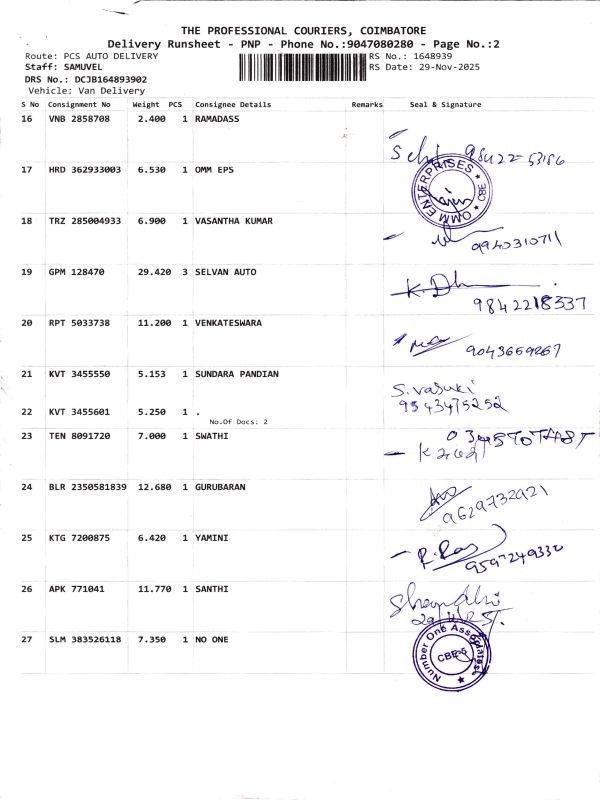 THE PROFESSIONAL COURIERS, COIMBATORE
Delivery Runsheet - PNP - Phone No.:9047080280 - Page No.:2
Route: PCS AUTO DELIVERY RS No.: 1648939
Staff: SAMUVEL RS Date: 29-Nov-2025
DRS No.: DCJB164893902
Vehicle: Van Delivery
S No Consignment No Weight PCS Consignee Details Remarks Seal & Signature
16 VNB 2858708 2.400 1 RAMADASS
17 HRD 362933003 6.530 1 OMM EPS
OMM ENTERPRISES ★ CBE ★
18 TRZ 285004933 6.900 1 VASANTHA KUMAR
9940310711
19 GPM 128470 29.420 3 SELVAN AUTO
K.Dh
9842218337
20 RPT 5033738 11.200 1 VENKATESWARA
9043669267
21 KVT 3455550 5.153 1 SUNDARA PANDIAN
S.vasuki
9543475252
22 KVT 3455601 5.250 1 .
No.Of Docs: 2
23 TEN 8091720 7.000 1 SWATHI
24 BLR 2350581839 12.680 1 GURUBARAN
9629732921
25 KTG 7200875 6.420 1 YAMINI
9597249330
26 APK 771041 11.770 1 SANTHI
27 SLM 383526118 7.350 1 NO ONE
Number One Associates ★
CBE-6